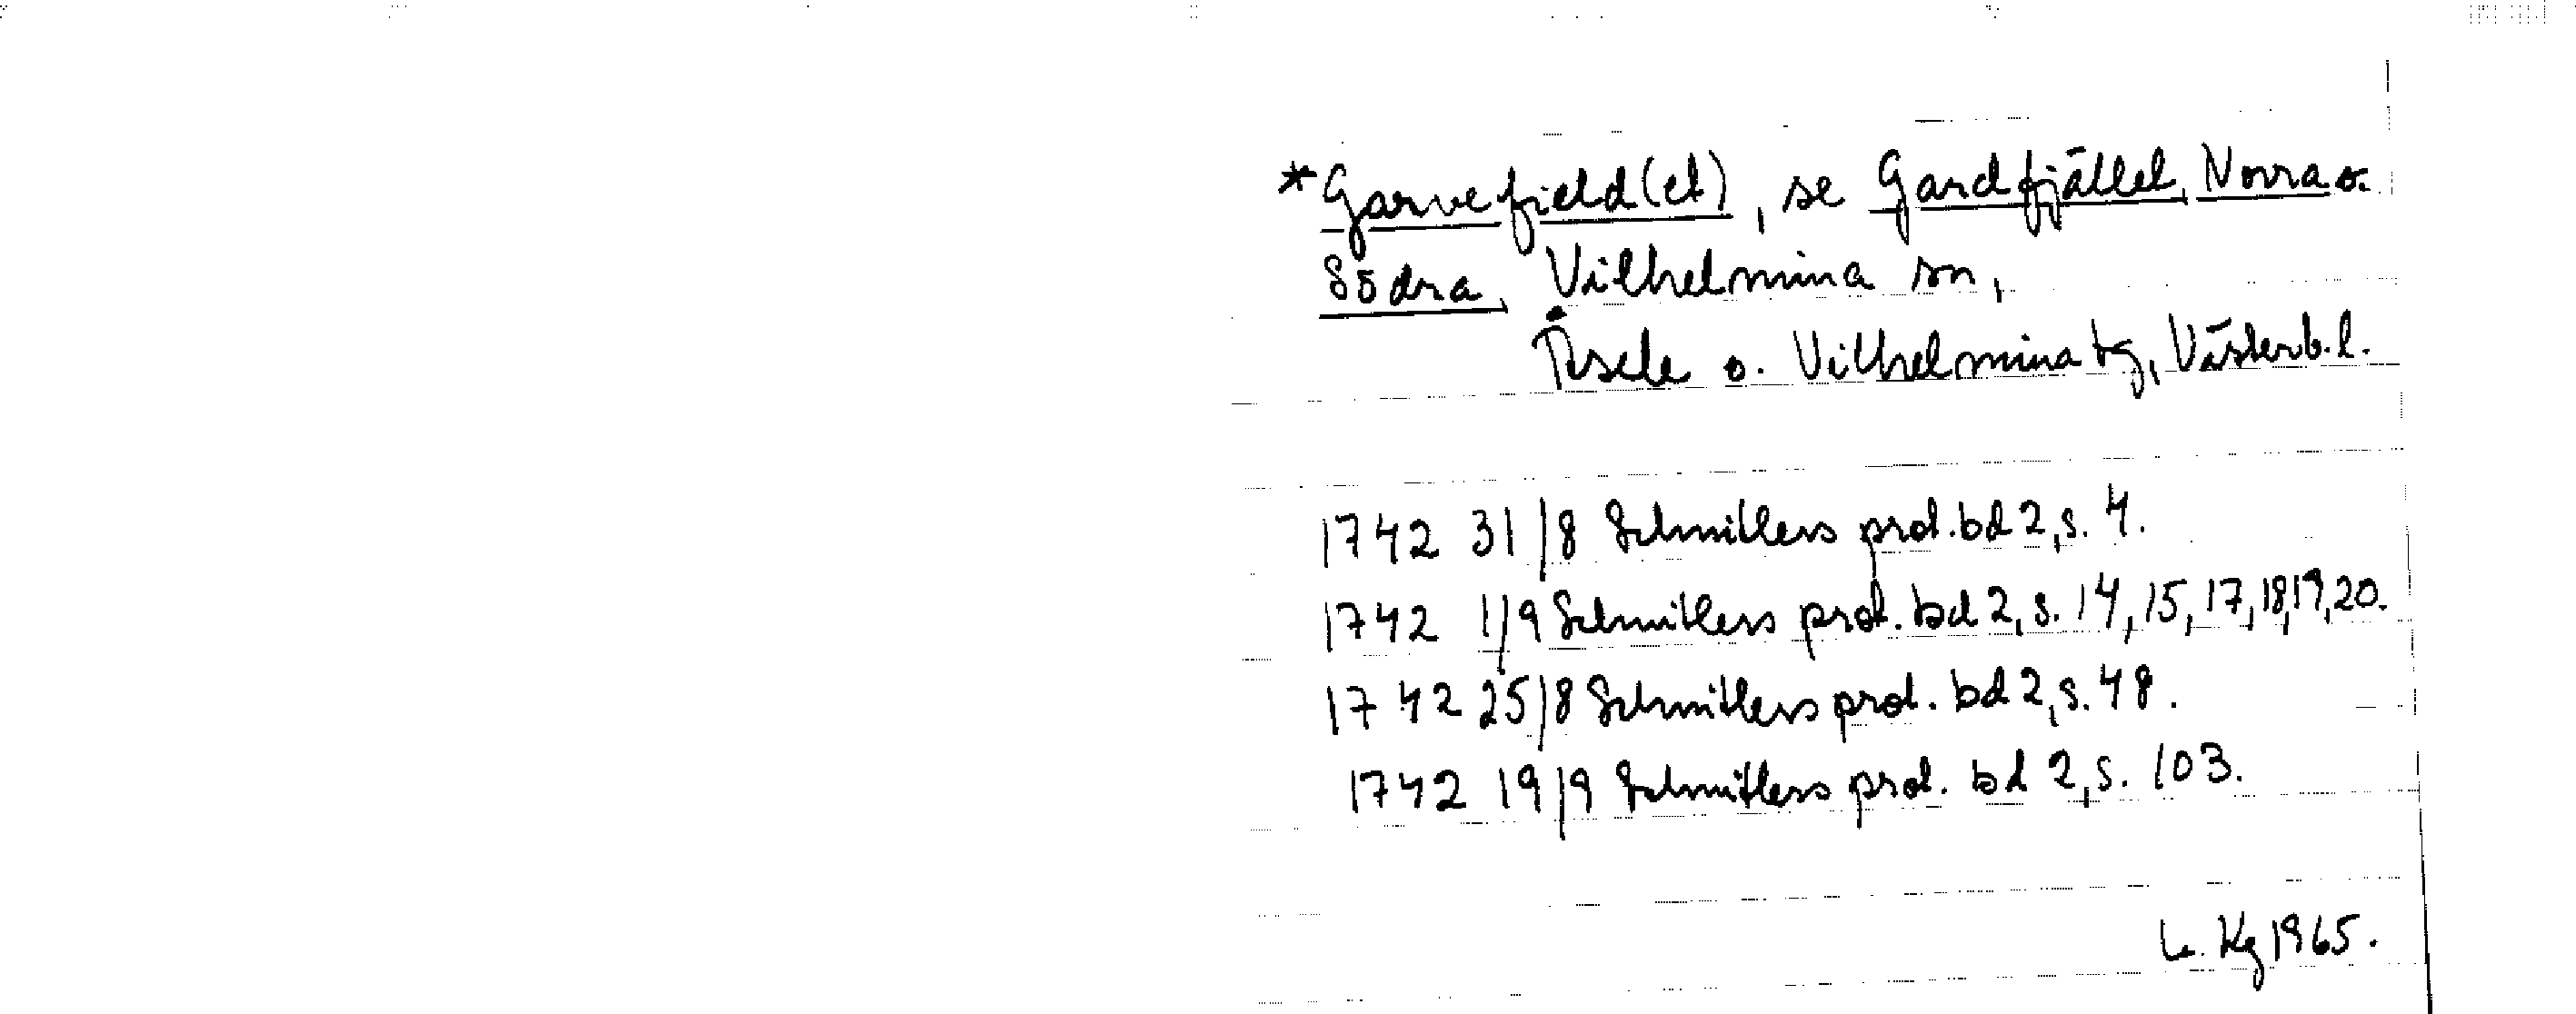 *Garvefield(et), se Gardfjället, Norra o.
Södra, Vilhelmina sn,
Åsele o. Vilhelmina tg, Västerb.l.
1742 31/8 Schnitlers prot. bd 2, s. 4.
1742 1/9 Schnitlers prot. bd 2, s. 14, 15, 17, 18, 19, 20.
1742 25/8 Schnitlers prot. bd 2, s. 48.
1742 19/9 Schnitlers prot. bd 2, s. 103.
Kg 1965.